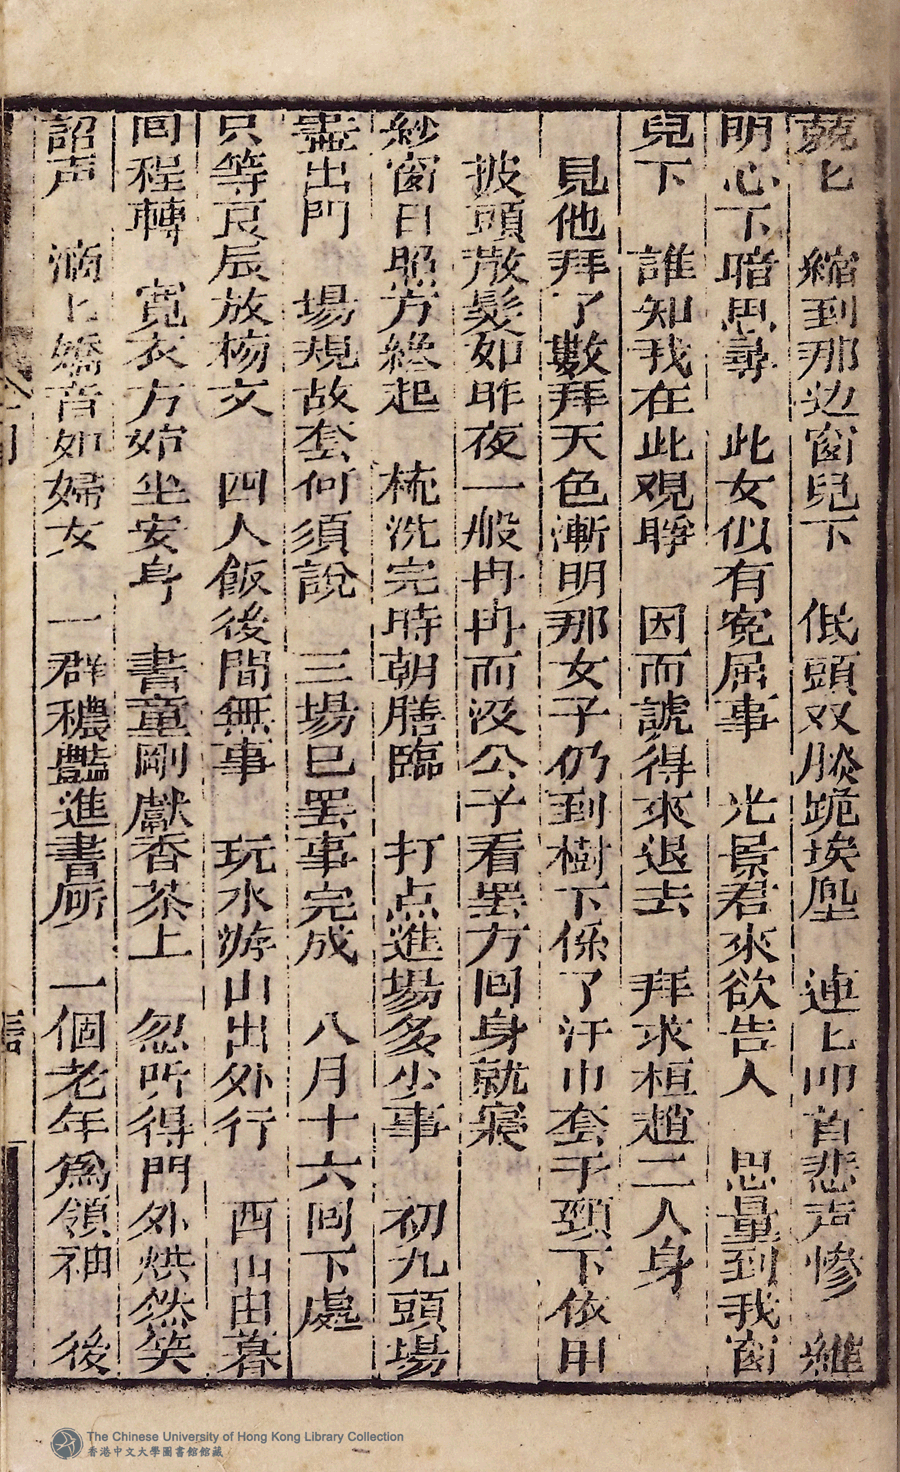 兢〻　縮到那边窗兒下　低頭双膝跪埃塵　連〻叩首悲声慘　維
明心下暗思尋　此女似有寃屈事　光景君來欲告人　思量到我窗
兒下　誰知我在此覌睜　因而諕得來退去　拜求桓趙二人身
見他拜了數拜天色漸明那女子仍到樹下係了汗巾套于頸下依旧
披頭散髮如昨夜一般冉冉而没公子看罢方囘身就寢
紗窗日照方纔起　梳洗完時朝膳臨　打点進場多少事　初九頭場
盡出門　場規故套何須說　三場已罢事完成　八月十六囘下處
只等良辰放榜文　四人飯後間無事　玩水游山出外行　西山由暮
囘程轉　寛衣方始坐安身　書童剛獻香茶上　忽听得門外烘然笑
詔声　滴〻嬌音如婦女　一群穠豔進書所　一個老年爲領袖　後
The Chinese University of Hong Kong Library Collection
香港中文大學圖書館館藏